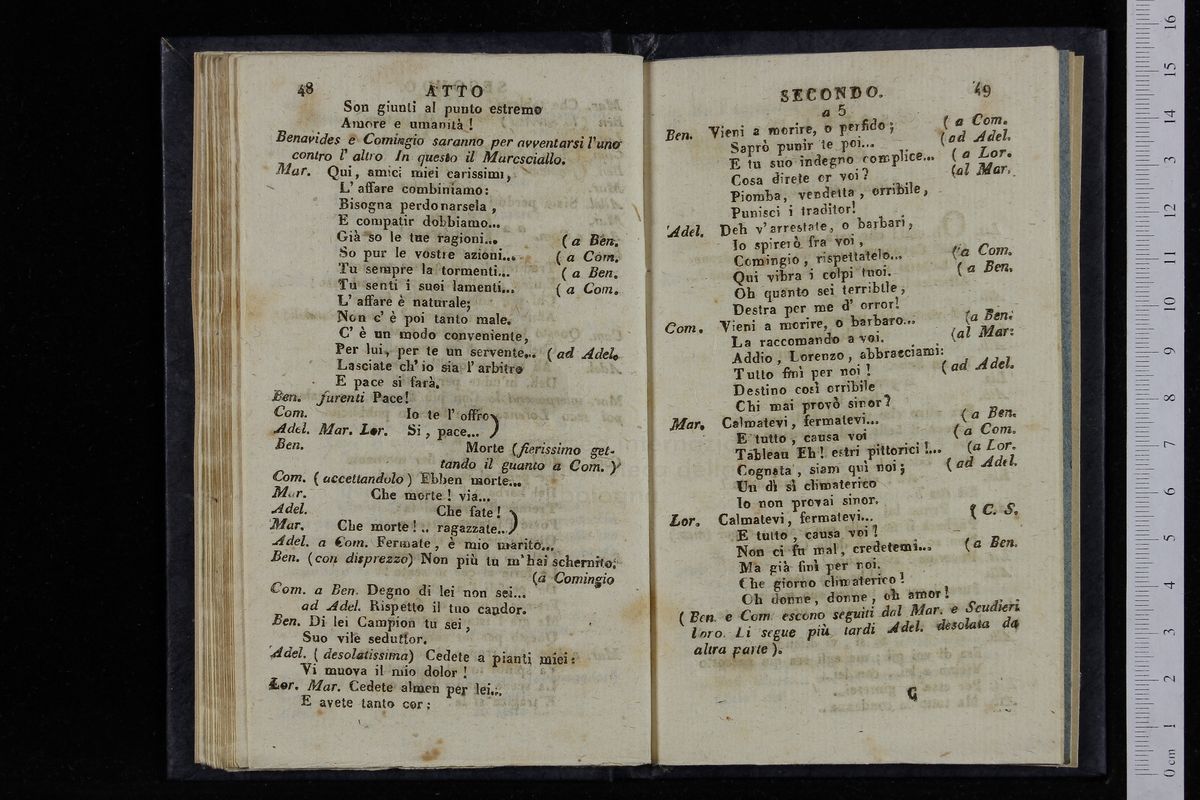 48 ATTO
Son giunti al punto estremo
Amore e umanità !
Benavides e Comingio saranno per avventarsi l'uno
contro l' altro In questo il Maresciallo.
Mar. Qui, amici miei carissimi,
L' affare combiniamo:
Bisogna perdonarsela ,
E compatir dobbiamo...
Già so le tue ragioni... (a Ben.
So pur le vostre azioni... (a Com.
Tu sempre la tormenti... (a Ben.
Tu senti i suoi lamenti... (a Com.
L' affare è naturale;
Non c' è poi tanto male.
C' è un modo conveniente,
Per lui, per te un servente... (ad Adel.
Lasciate ch' io sia l' arbitro
E pace si farà.
Ben. furenti Pace!
Com. Io te l' offro
Adel. Mar. Lor. Si, pace... )
Ben. Morte (fierissimo get-
tando il guanto a Com. )
Com. (accettandolo) Ebben morte...
Mar. Che morte ! via...
Adel. Che fate !
Mar. Che morte ! .. ragazzate.. )
Adel. a Com. Fermate , è mio marito...
Ben. (con disprezzo) Non più tu m'hai schernito:
(a Comingio
Com. a Ben. Degno di lei non sei...
ad Adel. Rispetto il tuo candor.
Ben. Di lei Campion tu sei ,
Suo vile seduttor.
Adel. ( desolatissima) Cedete a pianti miei :
Vi muova il mio dolor !
Lor. Mar. Cedete almen per lei...
E avete tanto cor :
SECONDO. 49
a 5
Ben. Vieni a morire, o perfido ; ( a Com.
Saprò punir te poi... (ad Adel.
E tu suo indegno complice... ( a Lor.
Cosa direte or voi ? (al Mar.
Piomba, vendetta , orribile ,
Punisci i traditor!
Adel. Deh v'arrestate, o barbari,
Io spirerò fra voi ,
Comingio , rispettatelo... (a Com.
Qui vibra i colpi tuoi. ( a Ben.
Oh quanto sei terribile ,
Destra per me d' orror!
Com. Vieni a morire, o barbaro... (a Ben:
La raccomando a voi. (al Mar:
Addio , Lorenzo , abbracciami:
Tutto finì per noi ! ( ad Adel.
Destino così orribile
Chi mai provò sinor ?
Mar. Calmatevi , fermatevi... ( a Ben.
E tutto , causa voi ( a Com.
Tableau Eh ! estri pittorici !... (a Lor.
Cognata , siam quì noi ; ( ad Adel.
Un dì sì climaterico
Io non provai sinor.
Lor. Calmatevi , fermatevi... ( C. S.
E tutto , causa voi !
Non ci fu mal , credetemi... ( a Ben.
Ma già finì per noi.
Che giorno climaterico !
Oh donne , donne , oh amor !
( Ben. e Com. escono seguiti dal Mar. e Scudieri
loro. Li segue più tardi Adel. desolata da
altra parte ).
G
0 cm 1 2 3 4 5 6 7 8 9 10 11 12 3 14 15 16